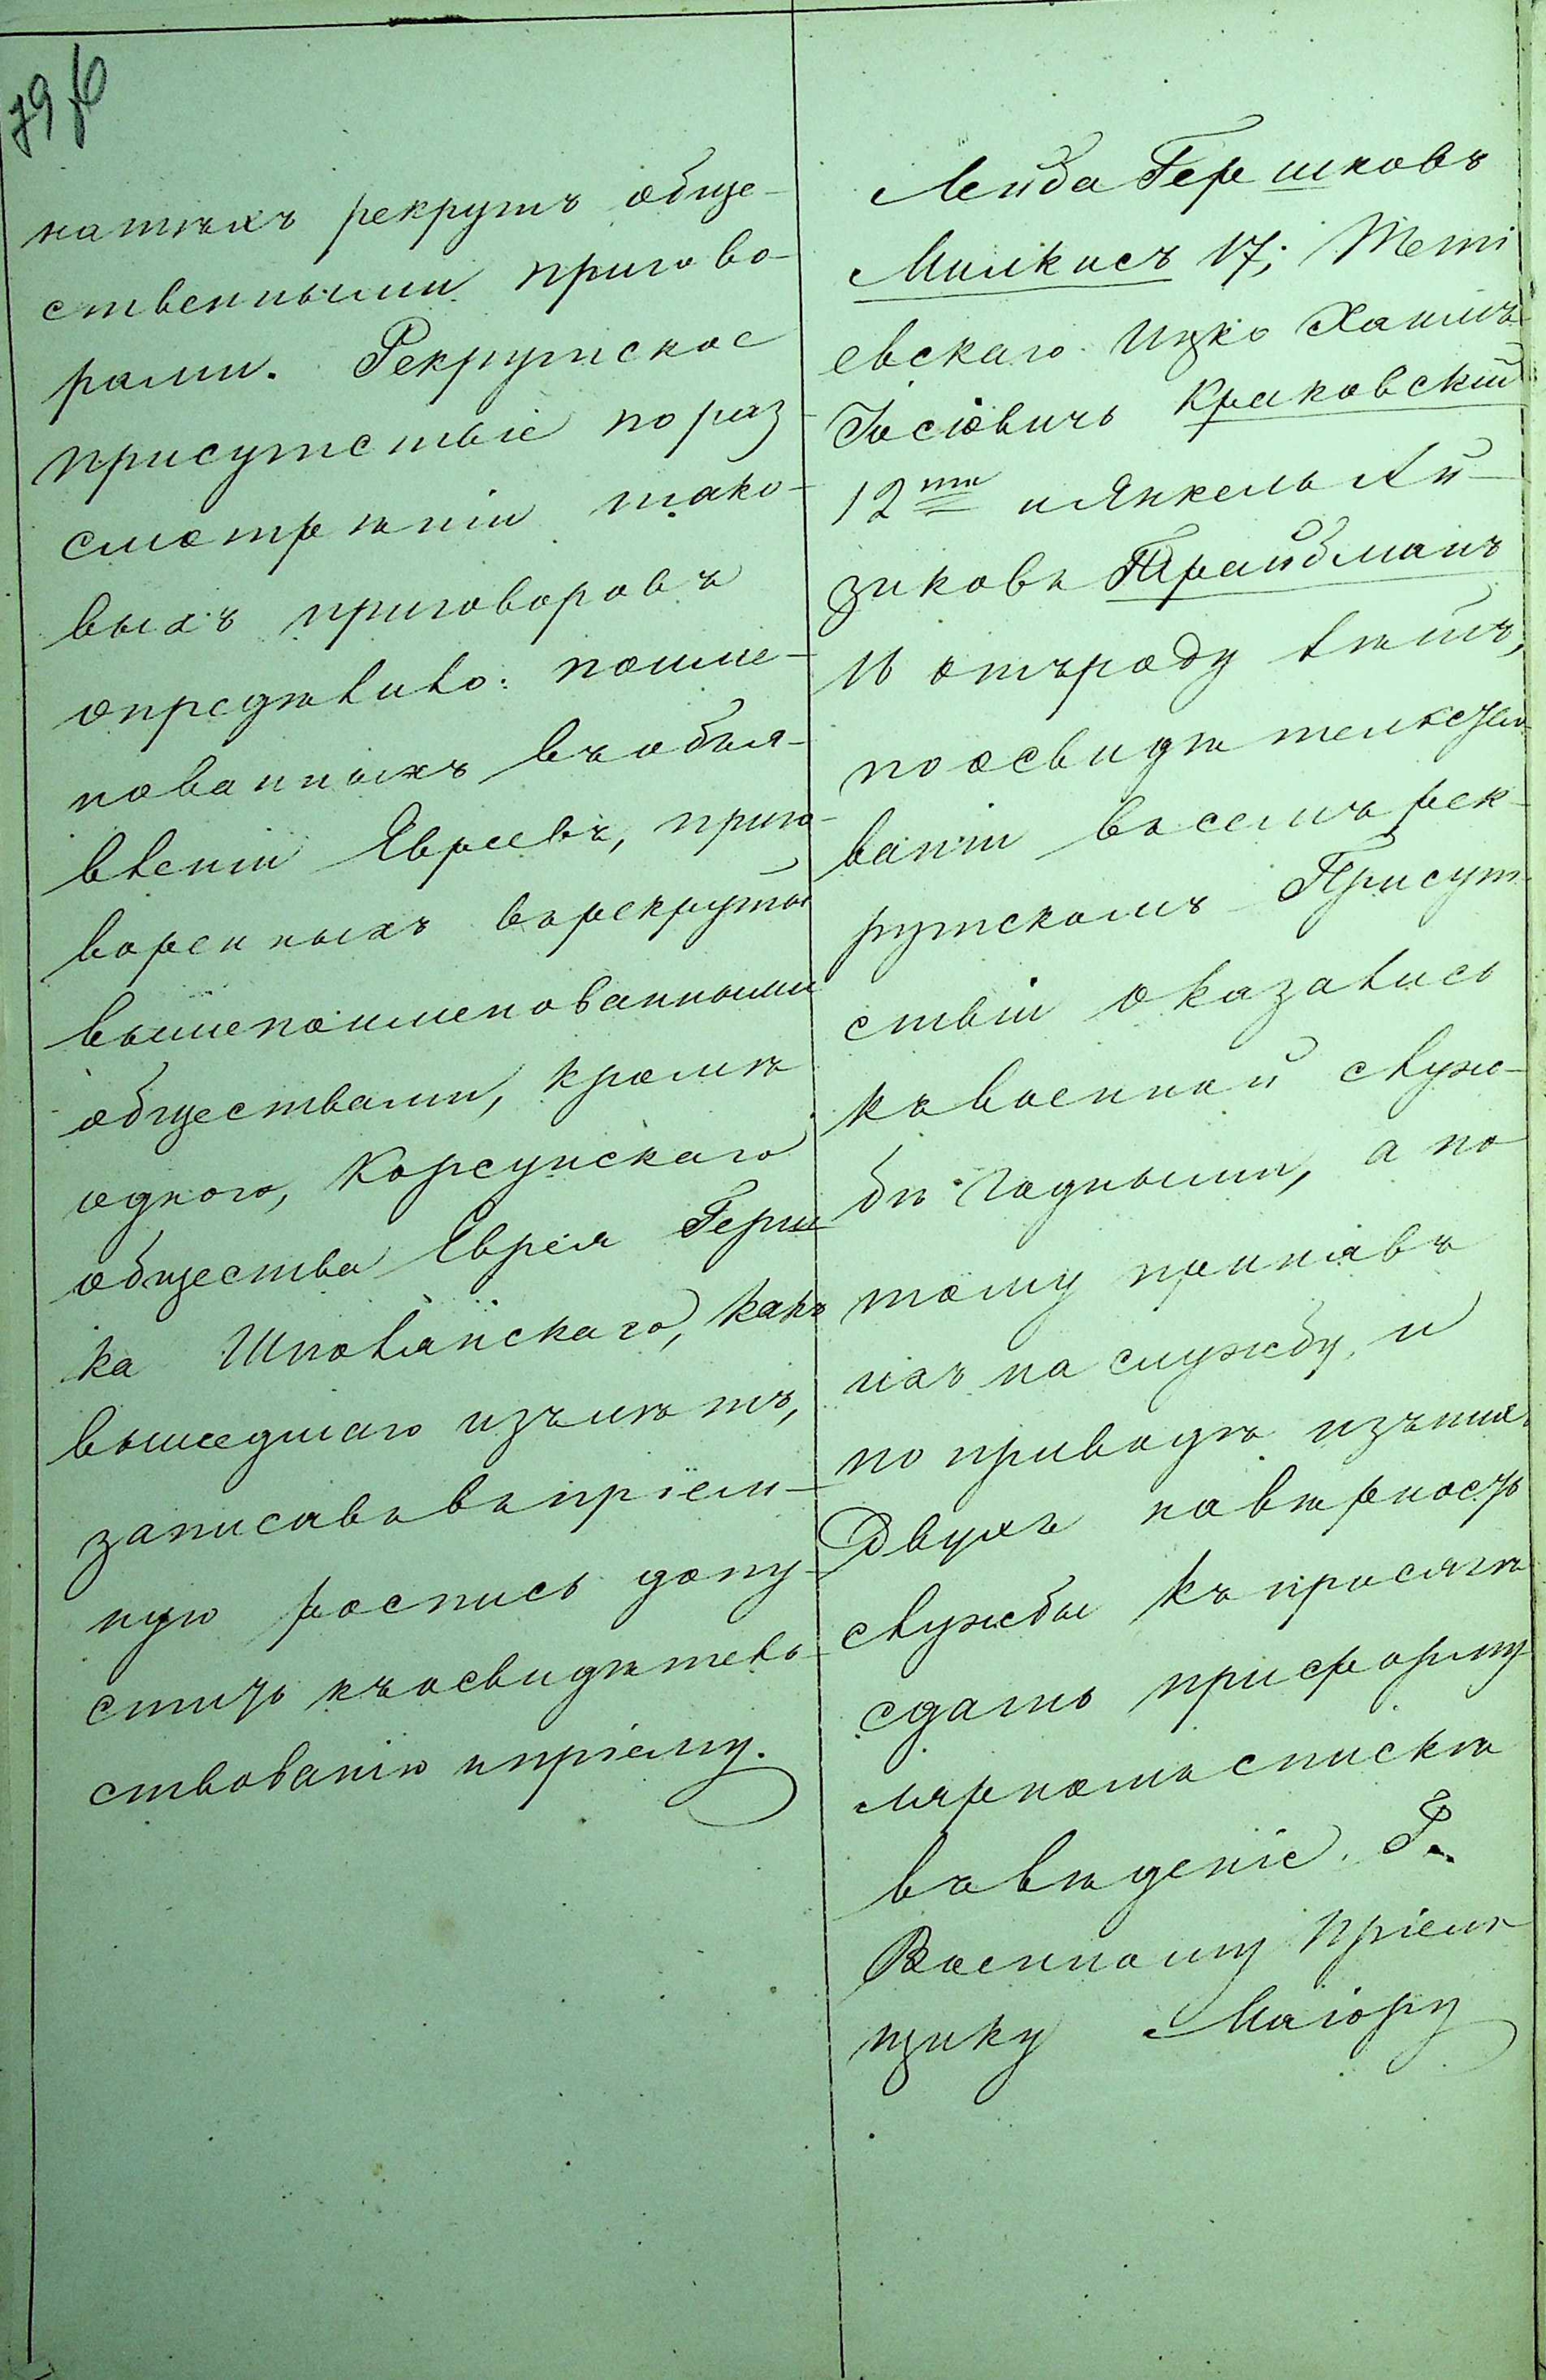 79 об
натныхъ рекрутъ обще-
ственными пригово-
рами. Рекрутское
присутствіе по раз-
смотрѣніи тако-
выхъ приговоровъ
опредѣлило: поиме-
нованныхъ въ объя-
вленіи Евреевъ, приго-
воренныхъ въ рекруты
вышепоименованными
обществами, кромѣ
одного, Корсунскаго
общества Еврея Герш
ка Шполянскаго, какъ
вышедшаго изъ лѣтъ,
записавъ въ пріем-
ную роспись допу-
стить къ освидѣтель-
ствованію и пріему.
Лейба Гершковъ
Милкисъ 17; Тети
евскаго Ицко Хаимъ
Іосіовичъ Краковскій
12ти и Янкель Ай-
зиковъ Трайбманъ
16 отъ роду лѣтъ,
по освидѣтельство
ваніи въ семъ рек-
рутскомъ Присут-
ствіи оказались
къ военной служ-
бѣ годными, а по
тому принявъ
ихъ на службу, и
по приводѣ изъ нихъ
Двухъ на вѣрность
службы къ присягѣ
сдать при форму
лярномъ спискѣ
въ вѣденіе Г.
Военному Пріем
щику Маіору